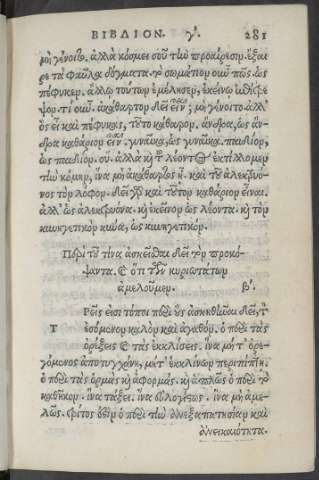 ΒΙΒΛΙΟΝ. γ'. 281
μὴ γένοιτο. ἀλλὰ κόσμει σοῦ τὴν προαίρεσιν. ἔξαι
ρε τὰ φαῦλα δόγματα. τὸ σωμάτιον οὖν πῶς; ὡς
πέφυκεν. ἄλλῳ τούτων ἐμέλησεν, ἐκείνῳ ἐπίτρε
ψον. τί οὖν. ἀκάθαρτον δεῖ εἶναι; μὴ γένοιτο. ἀλλ'
ὃς εἶ καὶ πέφυκας, τοῦτον κάθαιρε. ἄνδρα, ὡς ἄν-
δρα καθάριον εἶναι. γυναῖκα, ὡς γυναῖκα. παιδίον,
ὡς παιδίον. οὔ. ἀλλὰ καὶ τοῦ λέοντος ἐκτίλωμεν
τὴν κόμην, ἵνα μὴ ἀκάθαρτος ᾖ. καὶ τοῦ ἀλεκτρυό-
νος τὸν λόφον. δεῖ γὰρ καὶ τοῦτον καθάριον εἶναι.
ἀλλ' ὡς ἀλεκτρυόνα. καὶ ἐκεῖνον ὡς λέοντα. καὶ τὸν
κυνηγετικὸν κύνα, ὡς κυνηγετικόν.
Περὶ τοῦ τίνα ἀσκεῖσθαι δεῖ τὸν προκό-
ψαντα. καὶ ὅτι τῶν κυριωτάτων
ἀμελοῦμεν. β'.
Τ Ρεῖς εἰσι τόποι περὶ οὓς ἀσκηθῆναι δεῖ, τὸν
ἐσόμενον καλὸν καὶ ἀγαθόν. ὁ περὶ τὰς
ὀρέξεις καὶ τὰς ἐκκλίσεις. ἵνα μήτ' ὀρε-
γόμενος ἀποτυγχάνῃ, μήτ' ἐκκλίνων περιπίπτῃ.
ὁ περὶ τὰς ὁρμὰς καὶ ἀφορμάς. καὶ ἁπλῶς ὁ περὶ τὸ
καθῆκον. ἵνα τάξει. ἵνα εὐλογίστως. ἵνα μὴ ἀμε-
λῶς. τρίτος ἐστὶν ὁ περὶ τὴν ἀνεξαπατησίαν καὶ
ἀνεικαιότητα.